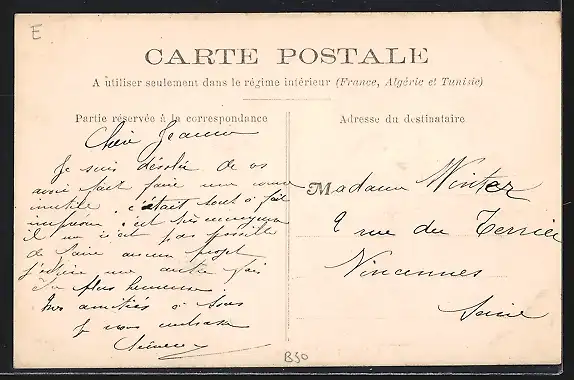 E
CARTE POSTALE
A utiliser seulement dans le régime intérieur (France, Algérie et Tunisie)
Partie réservée à la correspondance
Chère Jeanne
Je suis désolée de vs
avoir fait faire une course
inutile. c'était tout à fait
imprévu, c'est très ennuyeux
il n'est pas possible
de faire aucun projet
J'espère une autre fois
plus heureuse
Mes amitiés à tous
Je vous embrasse
Adresse du destinataire
Madame Winter
2 rue du Terrier
Vincennes
Seine
B30